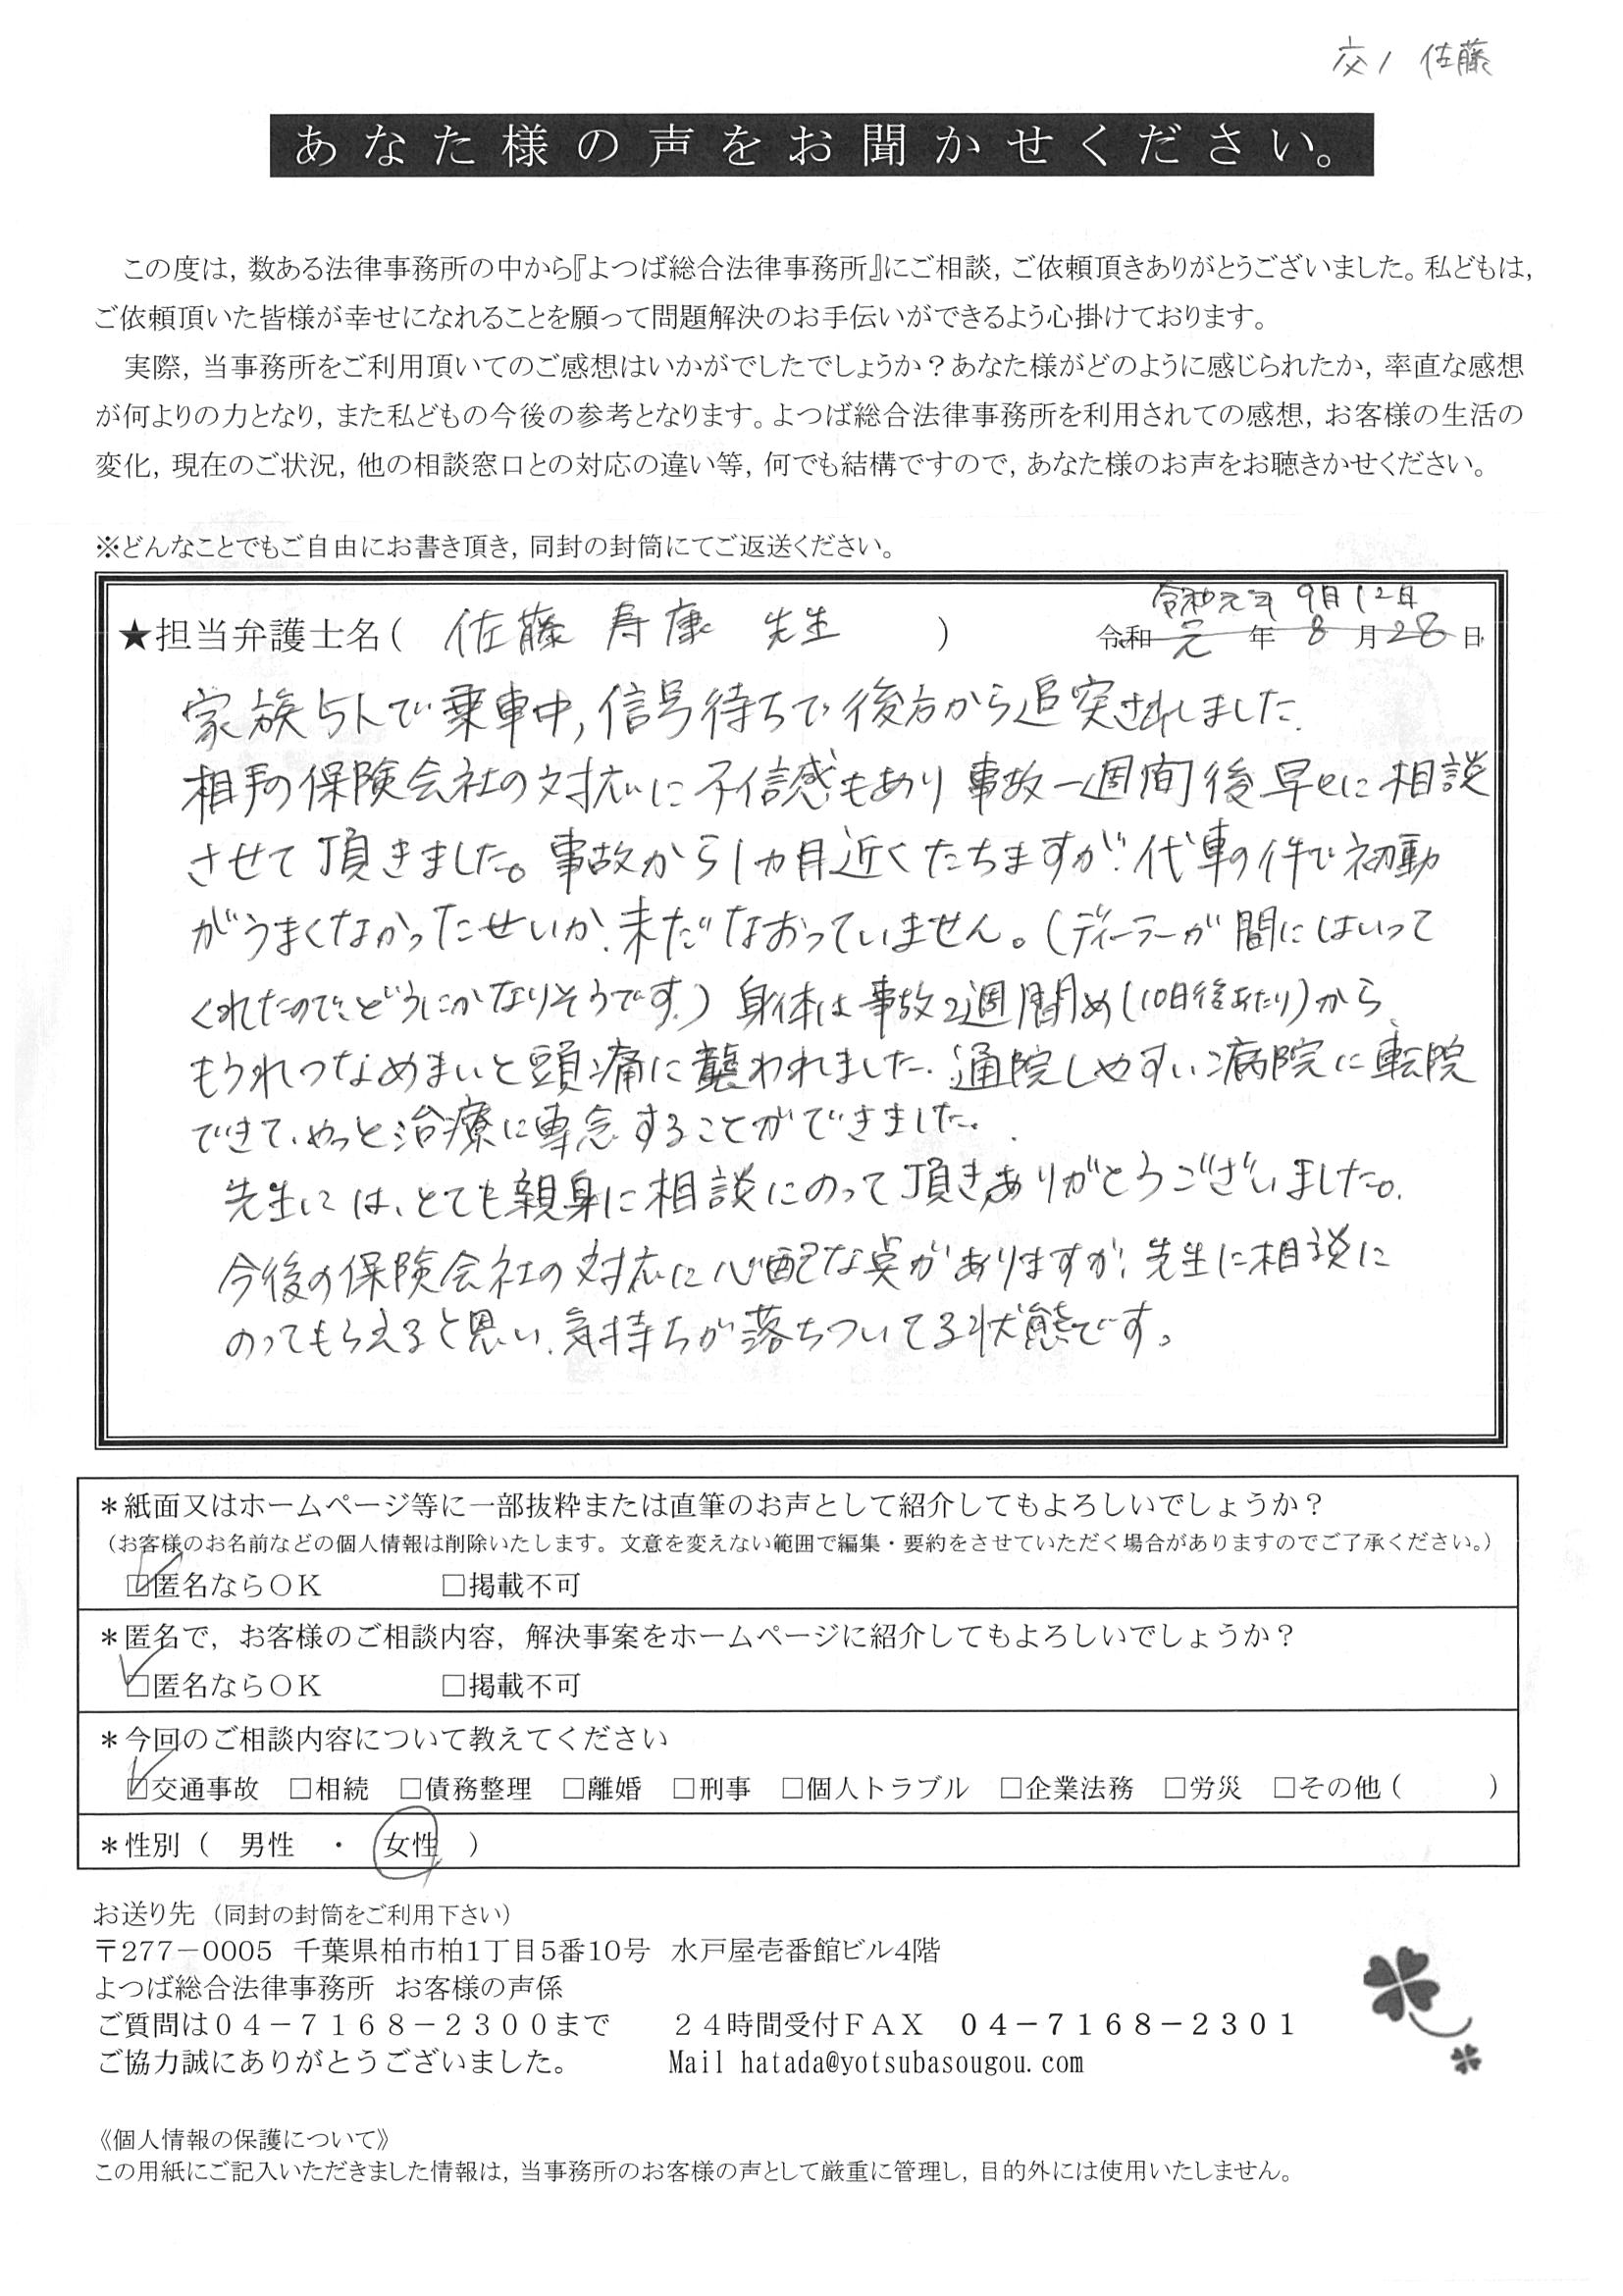 交ノ 佐藤
あなた様の声をお聞かせください。
この度は，数ある法律事務所の中から『よつば総合法律事務所』にご相談，ご依頼頂きありがとうございました。私どもは，
ご依頼頂いた皆様が幸せになれることを願って問題解決のお手伝いができるよう心掛けております。
実際，当事務所をご利用頂いてのご感想はいかがでしたでしょうか？あなた様がどのように感じられたか，率直な感想
が何よりの力となり，また私どもの今後の参考となります。よつば総合法律事務所を利用されての感想，お客様の生活の
変化，現在のご状況，他の相談窓口との対応の違い等，何でも結構ですので，あなた様のお声をお聴きかせください。
※どんなことでもご自由にお書き頂き，同封の封筒にてご返送ください。
令和元年 9月12日
★担当弁護士名( 佐藤 寿康 先生 ) 令和 元 年 8 月 28 日
家族5人で乗車中,信号待ちで後方から追突されました.
相手の保険会社の対応に不信感もあり事故一週間後早々に相談
させて頂きました。事故から1カ月近くたちますが、代車の件で初動
がうまくなかったせいか、未だなおっていません。(ディーラーが間にはいって
くれたので、どうにかなりそうです。) 身体は事故2週間め(10日後あたり)から、
もうれつなめまいと頭痛に襲われました. 通院しやすい病院に転院
できて、やっと治療に専念することができました。
先生には、とても親身に相談にのって頂きありがとうございました。
今後の保険会社の対応に心配な点がありますが、先生に相談に
のってもらえると思い、気持ちが落ちついてる状態です。
＊紙面又はホームページ等に一部抜粋または直筆のお声として紹介してもよろしいでしょうか？
（お客様のお名前などの個人情報は削除いたします。文意を変えない範囲で編集・要約をさせていただく場合がありますのでご了承ください。）
☑匿名ならＯＫ □掲載不可
＊匿名で，お客様のご相談内容，解決事案をホームページに紹介してもよろしいでしょうか？
☑匿名ならＯＫ □掲載不可
＊今回のご相談内容について教えてください
☑交通事故 □相続 □債務整理 □離婚 □刑事 □個人トラブル □企業法務 □労災 □その他（ ）
＊性別（ 男性 ・ 女性 ）
お送り先（同封の封筒をご利用下さい）
〒277－0005 千葉県柏市柏1丁目5番10号 水戸屋壱番館ビル4階
よつば総合法律事務所 お客様の声係
ご質問は０４－７１６８－２３００まで ２４時間受付ＦＡＸ ０４－７１６８－２３０１
ご協力誠にありがとうございました。 Mail hatada@yotsubasougou.com
《個人情報の保護について》
この用紙にご記入いただきました情報は，当事務所のお客様の声として厳重に管理し，目的外には使用いたしません。